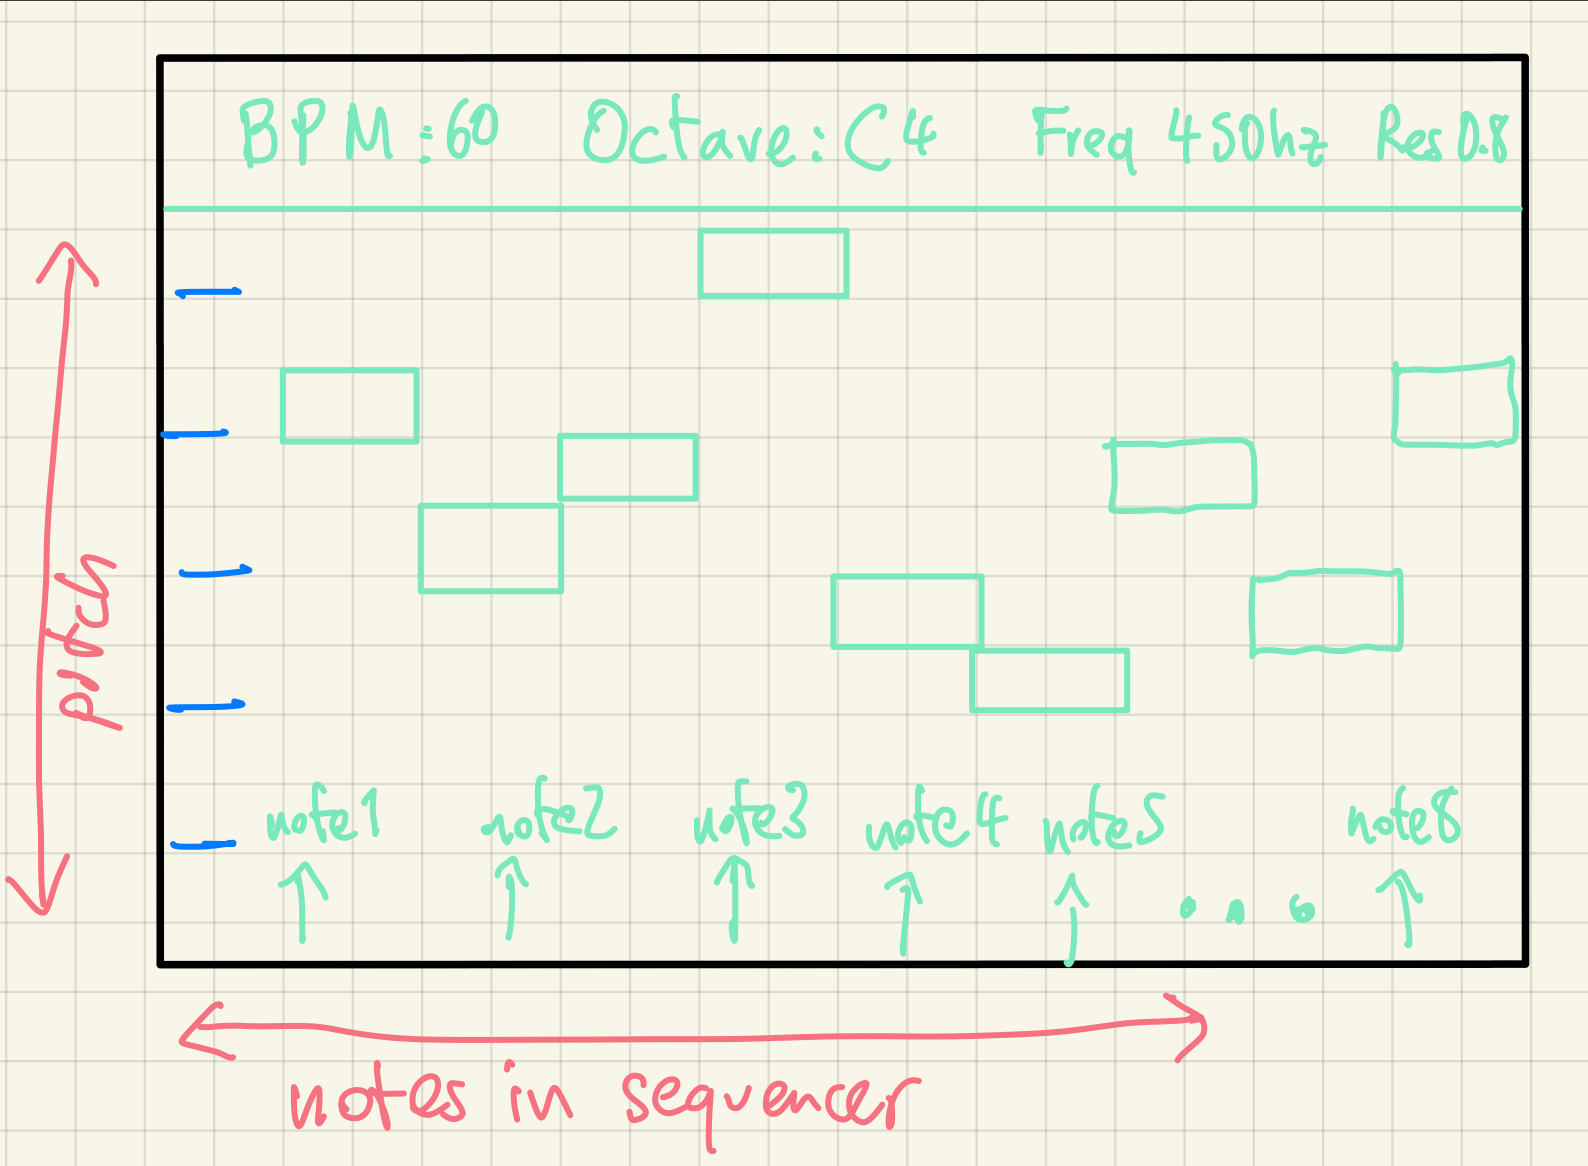 BPM:60 Octave:C4 Freq 450hz Res 0.8
pitch
note1 note2 note3 note4 note5 note8
notes in sequencer